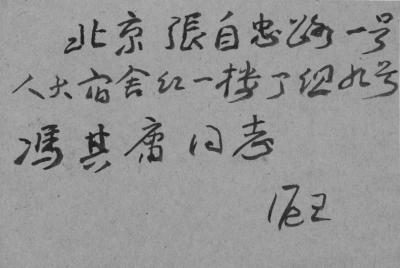 北京張自忠路一号
人大宿舍红一楼丁组九号
馮其庸同志